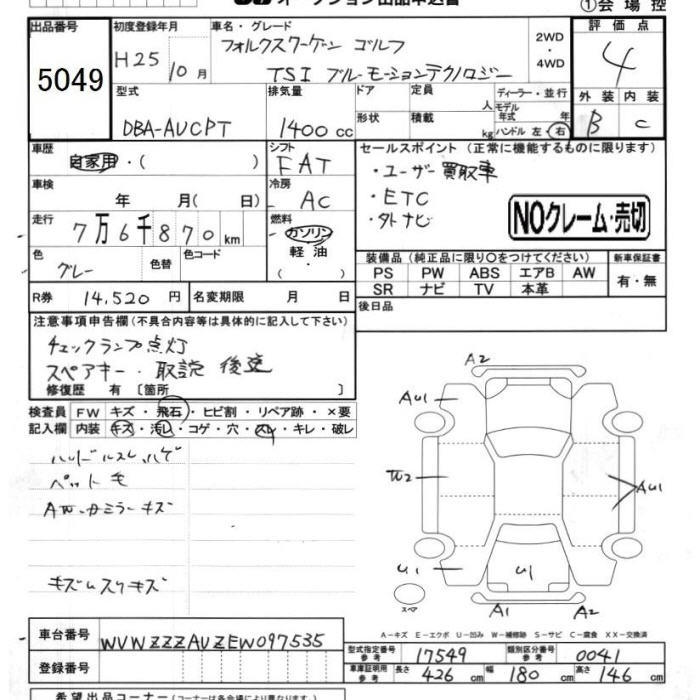 オークション出品申込書 ①会場控
出品番号 5049
初度登録年月 H25 10月
車名・グレード フォルクスワーゲン ゴルフ
TSI ブルーモーションテクノロジー
2WD・4WD
評価点 4
外装 B 内装 C
型式 DBA-AUCPT
排気量 1400cc
ドア 形状
定員 人
積載 kg
ディーラー・並行
モデル年式 年
ハンドル 左・右
車歴 自家用・( )
シフト FAT
車検 年 月( 日)
冷房 AC
走行 7万6千870km
燃料 ガソリン 軽油 ( ・ )
色 グレー 色替 色コード
R券 14,520円 名変期限 月 日
セールスポイント (正常に機能するものに限ります)
・ユーザー買取車
・ETC
・外ナビ
NOクレーム・売切
装備品 (純正品に限り○をつけてください) 新車保証書
PS PW ABS エアB AW 有・無
SR ナビ TV 本革
後日品
注意事項申告欄 (不具合内容等は具体的に記入して下さい)
チェックランプ点灯
スペアキー・取説 後送
修復歴 有 〔箇所 〕
検査員記入欄
FW キズ・飛石・ヒビ割・リペア跡・×要
内装 キズ・汚レ・コゲ・穴・スレ・キレ・破レ
ハンドルスレ、ハゲ
ペット毛
AW・カミラーキズ
キズ、スリキズ
A2
AU1
W2
AU1
U1
U1
スペア
A1 A2
A-キズ E-エクボ U-凹み W-補修跡 S-サビ C-腐食 XX-交換済
車台番号 WVWZZZAUZEW097535
登録番号
型式指定番号 参考 17549 類別区分番号 参考 0041
車庫証明用 参考 長さ 426cm 幅 180cm 高さ 146cm
希望出品コーナー (各会場によって異なります)